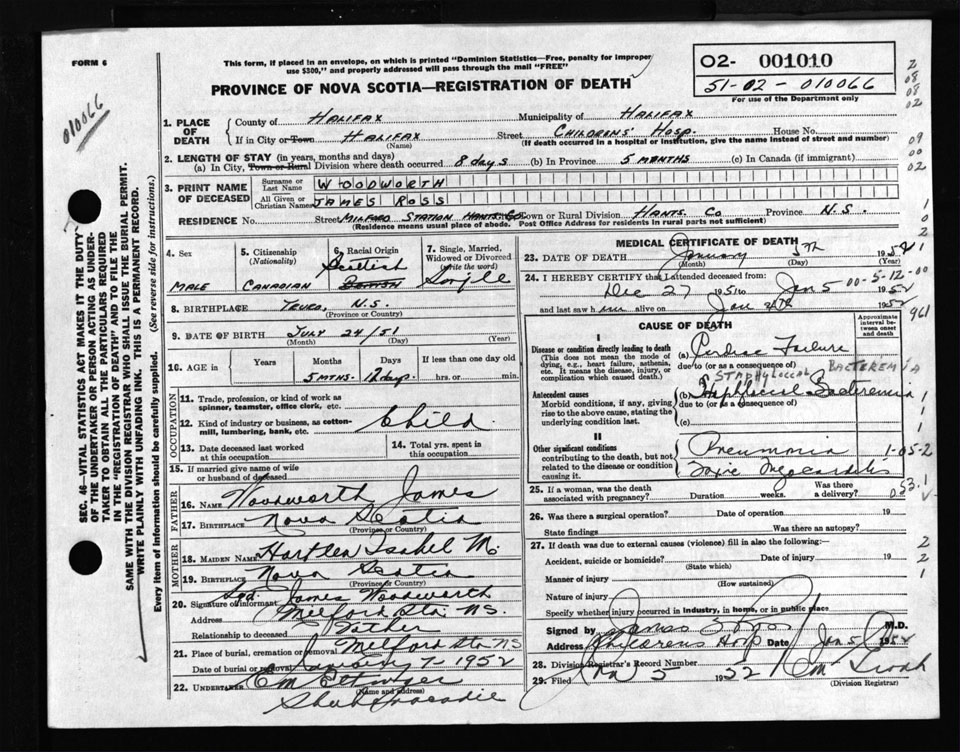 FORM 6
This form, if placed in an envelope, on which is printed "Dominion Statistics—Free, penalty for improper
use $300," and properly addressed will pass through the mail "FREE"
PROVINCE OF NOVA SCOTIA—REGISTRATION OF DEATH
02- 001010
51-02-010066
For use of the Department only
010066
SEC. 46—VITAL STATISTICS ACT MAKES IT THE DUTY
OF THE UNDERTAKER OR PERSON ACTING AS UNDER-
TAKER TO OBTAIN ALL THE PARTICULARS REQUIRED
IN THE "REGISTRATION OF DEATH" AND TO FILE THE
SAME WITH THE DIVISION REGISTRAR WHO SHALL ISSUE THE BURIAL PERMIT.
WRITE PLAINLY WITH UNFADING INK. THIS IS A PERMANENT RECORD.
Every item of information should be carefully supplied. (See reverse side for instructions.)
1. PLACE OF DEATH County of HALIFAX Municipality of HALIFAX
If in City or Town HALIFAX Street CHILDRENS' HOSP. House No.
(Name) (If death occurred in a hospital or institution, give the name instead of street and number)
2. LENGTH OF STAY (in years, months and days)
(a) In City, Town or Rural Division where death occurred 8 days (b) In Province 5 MONTHS (c) In Canada (if immigrant)
3. PRINT NAME OF DECEASED Surname or Last Name WOODWORTH
All Given or Christian Names JAMES ROSS
RESIDENCE No. Street MILFORD STATION HANTS. CO Town or Rural Division HANTS. CO Province N.S.
(Residence means usual place of abode. Post Office Address for residents in rural parts not sufficient)
4. Sex MALE
5. Citizenship (Nationality) CANADIAN
6. Racial Origin Scottish
7. Single, Married, Widowed or Divorced (write the word) Single
8. BIRTHPLACE TRURO, N.S.
(Province or Country)
9. DATE OF BIRTH JULY 24/51
(Month) (Day) (Year)
10. AGE in Years Months Days If less than one day old
5 MTHS. 12 days. hrs. or min.
OCCUPATION
11. Trade, profession, or kind of work as
spinner, teamster, office clerk, etc.
12. Kind of industry or business, as cotton-
mill, lumbering, bank, etc. Child
13. Date deceased last worked
at this occupation
14. Total yrs. spent in
this occupation
15. If married give name of wife
or husband of deceased
FATHER
16. NAME Woodworth James
17. BIRTHPLACE Nova Scotia
(Province or Country)
MOTHER
18. MAIDEN NAME Hartlen Isabel M.
19. BIRTHPLACE Nova Scotia
(Province or Country)
20. Signature of informant Sgd. James Woodworth
Address Milford Sta. N.S.
Relationship to deceased Father
21. Place of burial, cremation or removal Milford Sta N S
Date of burial or removal January 7 - 1952
22. UNDERTAKER
(Name and address)
Shubenacadie
MEDICAL CERTIFICATE OF DEATH
23. DATE OF DEATH January 5th 1952
(Month) (Day) (Year)
24. I HEREBY CERTIFY that I attended deceased from:
Dec 27 1951 to Jan 5 1952
and last saw h im alive on Jan 5th 1952
00-5-12-00
961
CAUSE OF DEATH
Approximate interval between onset and death
I
Disease or condition directly leading to death
(This does not mean the mode of
dying, e.g., heart failure, asthenia,
etc. It means the disease, injury, or
complication which caused death.)
(a) Cardiac Failure
due to (or as a consequence of)
STAPHYLOCCAL BACTEREMIA
Antecedent causes
Morbid conditions, if any, giving
rise to the above cause, stating the
underlying condition last.
(b) Staphlococcal Bacteremia
due to (or as a consequence of)
(c)
II
Other significant conditions
contributing to the death, but not
related to the disease or condition
causing it.
Pneumonia
Toxic Myocarditis
1-05-2
053.1
25. If a woman, was the death
associated with pregnancy? Duration weeks. Was there a delivery?
26. Was there a surgical operation? Date of operation 19
State findings Was there an autopsy?
27. If death was due to external causes (violence) fill in also the following:—
Accident, suicide or homicide? Date of injury 19
(State which)
Manner of injury
(How sustained)
Nature of injury
Specify whether injury occurred in industry, in home, or in public place
Signed by M.D.
Address Childrens Hosp Date Jan 5 1952
28. Division Registrar's Record Number
29. Filed Jan 5 1952
(Division Registrar)